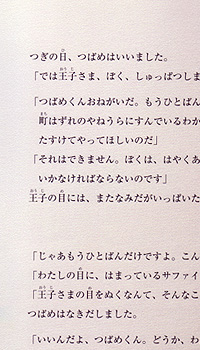 つぎの日、つばめはいいました。
「では王子さま、ぼく、しゅっぱつしま
「つばめくんおねがいだ。もうひとばん
町はずれのやねうらにすんでいるわか
たすけてやってほしいのだ」
「それはできません。ぼくは、はやくあ
いかなければならないのです」
王子の目には、またなみだがいっぱいた
「じゃあもうひとばんだけですよ。こん
「わたしの目に、はまっているサファイ
「王子さまの目をぬくなんて、そんなこ
つばめはなきだしました。
「いいんだよ、つばめくん。どうか、わ